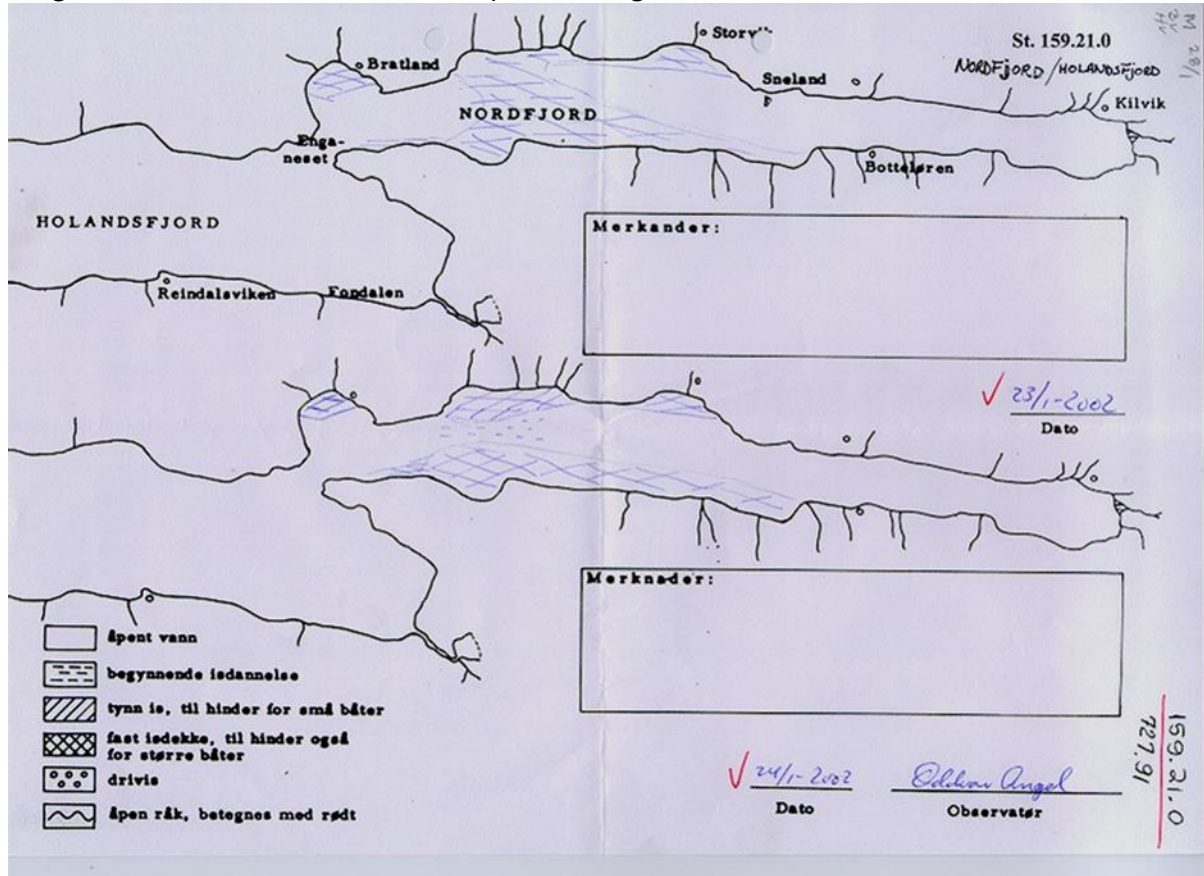 St. 159.21.0
NORDFJORD/HOLANDSFJORD
M 28/1
Storvik
Bratland
Sneland
Kilvik
NORDFJORD
Enga-
neset
Botteløren
HOLANDSFJORD
Merkander:
Reindalsviken
Fondalen
23/1-2002
Dato
Merknader:
åpent vann
begynnende isdannelse
tynn is, til hinder for små båter
fast isdekke, til hinder også
for større båter
drivis
åpen råk, betegnes med rødt
24/1-2002
Dato
Oddvar Angel
Observatør
159.21.0
727.91